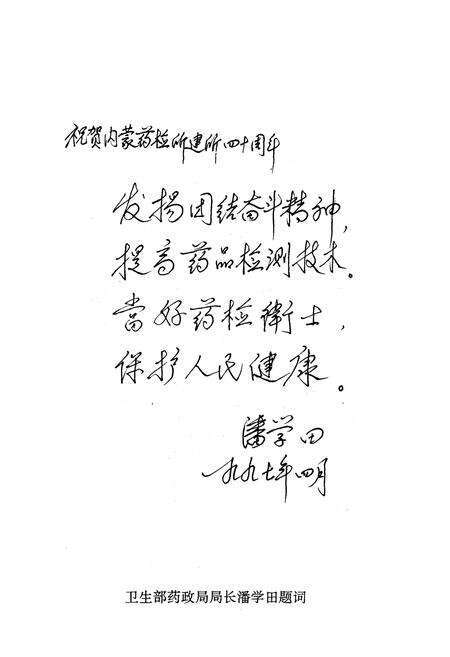 祝贺内蒙药检所建所四十周年
发扬团结奋斗精神，
提高药品检测技术。
當好药检衛士，
保护人民健康。
潘学田
一九九七年四月
卫生部药政局局长潘学田题词